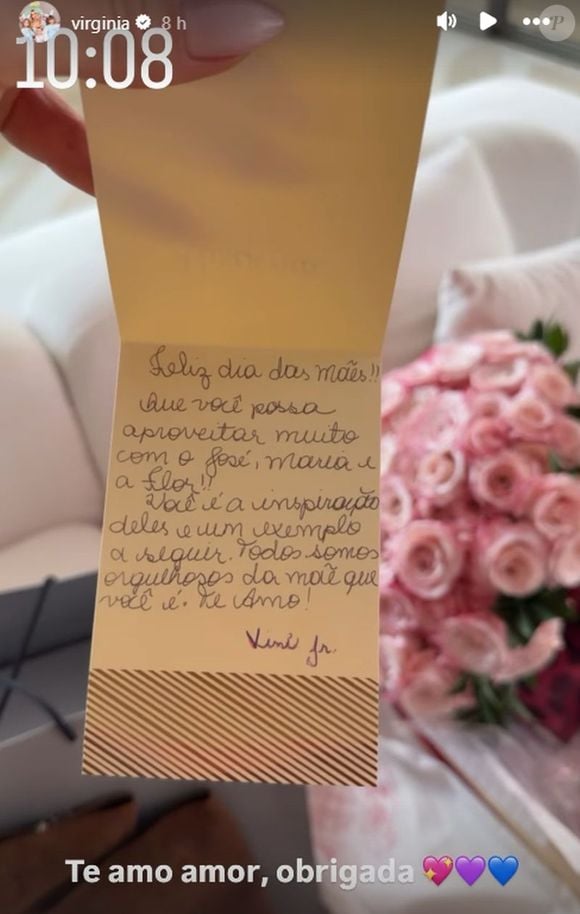 virginia 8 h
10:08
P
Feliz dia das mães!!
Que você possa
aproveitar muito
com o José, Maria e
a Flor!!
Você é a inspiração
deles e um exemplo
a seguir. Todos somos
orgulhosos da mãe que
você é. Te Amo!
Vini Jr.
Te amo amor, obrigada 💖💜💙